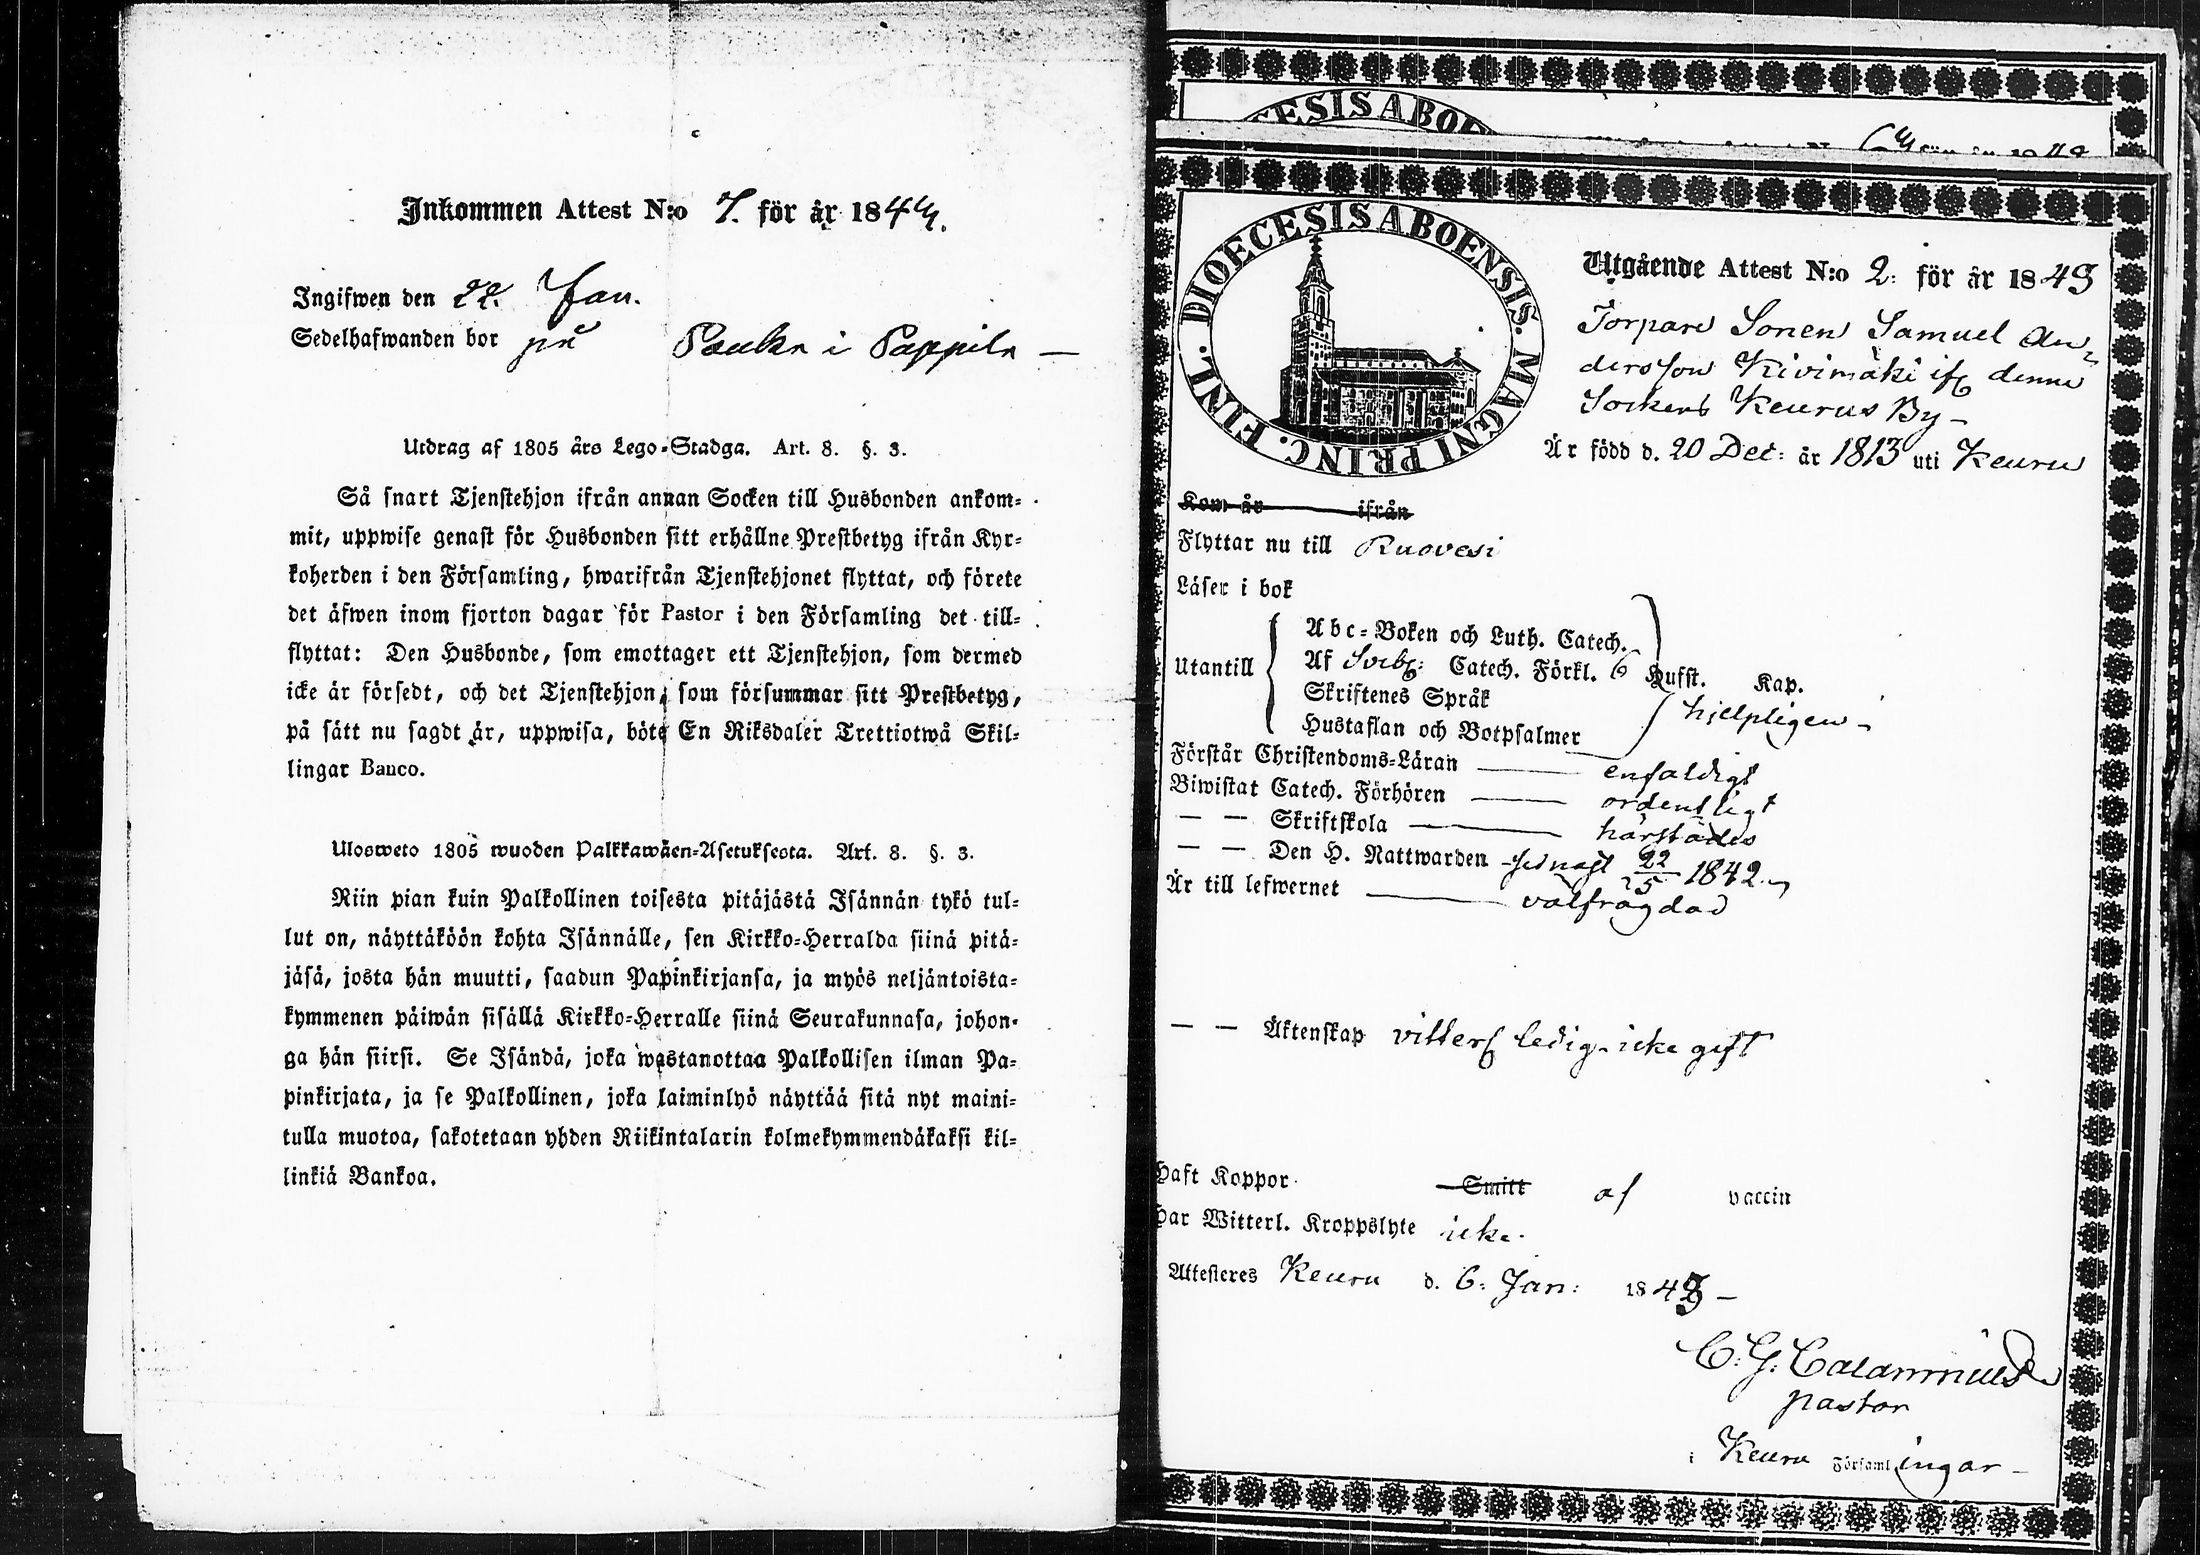 Inkommen Attest N:o 7. för år 1844.
Ingifwen den 22. Jan.
Sedelhafwanden bor på Pauka i Pappila —
Utdrag af 1805 års Lego-Stadga. Art. 8. §. 3.
Så snart Tjenstehjon ifrån annan Socken till Husbonden ankom=
mit, uppwise genast för Husbonden sitt erhållne Prestbetyg ifrån Kyr=
koherden i den Församling, hwarifrån Tjenstehjonet flyttat, och förete
det äfwen inom fjorton dagar för Pastor i den Församling det till=
flyttat: Den Husbonde, som emottager ett Tjenstehjon, som dermed
icke är försedt, och det Tjenstehjon, som försummar sitt Prestbetyg,
på sätt nu sagdt är, uppwisa, böte En Riksdaler Trettiotwå Skil=
lingar Banco.
Ulosweto 1805 wuoden Palkkawäen-Asetuksesta. Art. 8. §. 3.
Niin pian kuin Palkollinen toisesta pitäjästä Isännän tykö tul=
lut on, näyttäköön kohta Isännälle, sen Kirkko=Herralda siinä pitä=
jäsä, josta hän muutti, saadun Papinkirjansa, ja myös neljäntoista=
kymmenen päiwän sisällä Kirkko=Herralle siinä Seurakunnasa, johon=
ga hän siirsi. Se Isändä, joka wastanottaa Palkollisen ilman Pa=
pinkirjata, ja se Palkollinen, joka laiminlyö näyttää sitä nyt maini=
tulla muotoa, sakotetaan yhden Riikintalarin kolmekymmendäkaksi kil=
linkiä Bankoa.
DIOECESIS ABOENSIS. MAGNI PRINC. FINL.
Utgående Attest N:o 2: för år 1843
Torpare Sonen Samuel An=
dersson Kivimäki if denne
Sockens Keurus By —
Är född d. 20 Dec: år 1813 uti Keuru
Kom år ifrån
Flyttar nu till Ruovesi
Läser i bok
Abc=Boken och Luth. Catech.
Utantill Af Svebel: Catech. Förkl. 6 Hufst. Kap.
Skriftenes Språk
hjelpligen —
Hustaflan och Botpsalmer
Förstår Christendoms=Läran — enfaldigt
Biwistat Catech. Förhören — ordentligt
— — Skriftskola — härstädes
— — Den H. Nattwarden sednast 22/5 1842.
Är till lefwernet — välfrägdad
— — Äktenskap vitterl. ledig — icke gift
Haft Koppor Smitt af vaccin
Har Witterl. Kroppslyte icke.
Attesteras Keuru d. 6: Jan: 1843 —
C: G: Calamnius
pastor
i Keuru Församlingar —